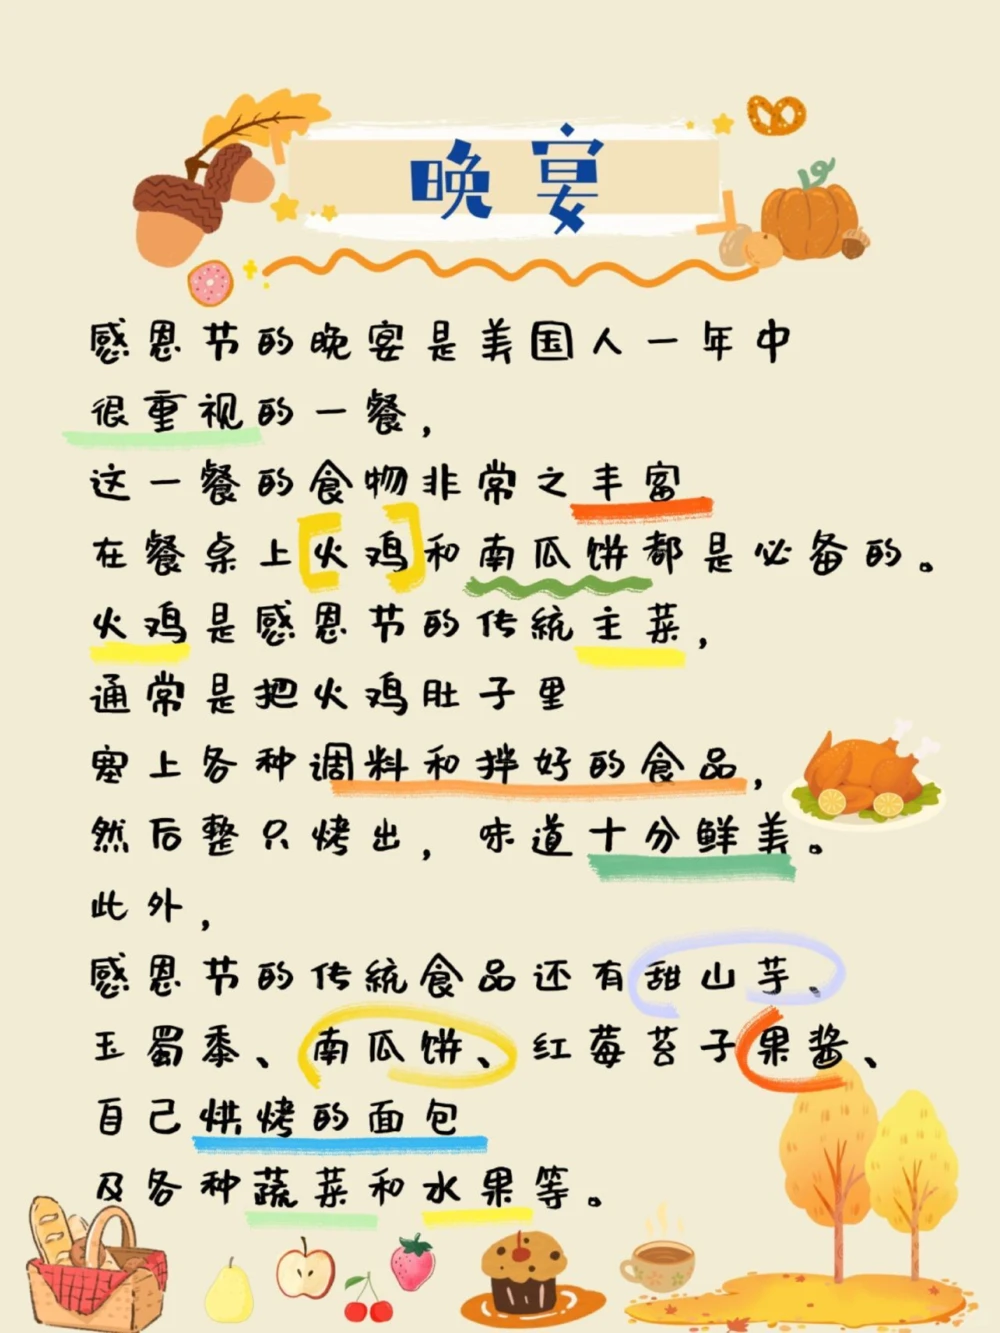 晚宴
感恩节的晚宴是美国人一年中
很重视的一餐，
这一餐的食物非常之丰富
在餐桌上火鸡和南瓜饼都是必备的。
火鸡是感恩节的传統主菜，
通常是把火鸡肚子里
塞上各种调料和拌好的食品，
然后整只烤出，味道十分鲜美。
此外，
感恩节的传統食品还有甜山芋、
玉蜀黍、南瓜饼、红莓苔子果酱、
自己烘烤的面包
及各种蔬菜和水果等。